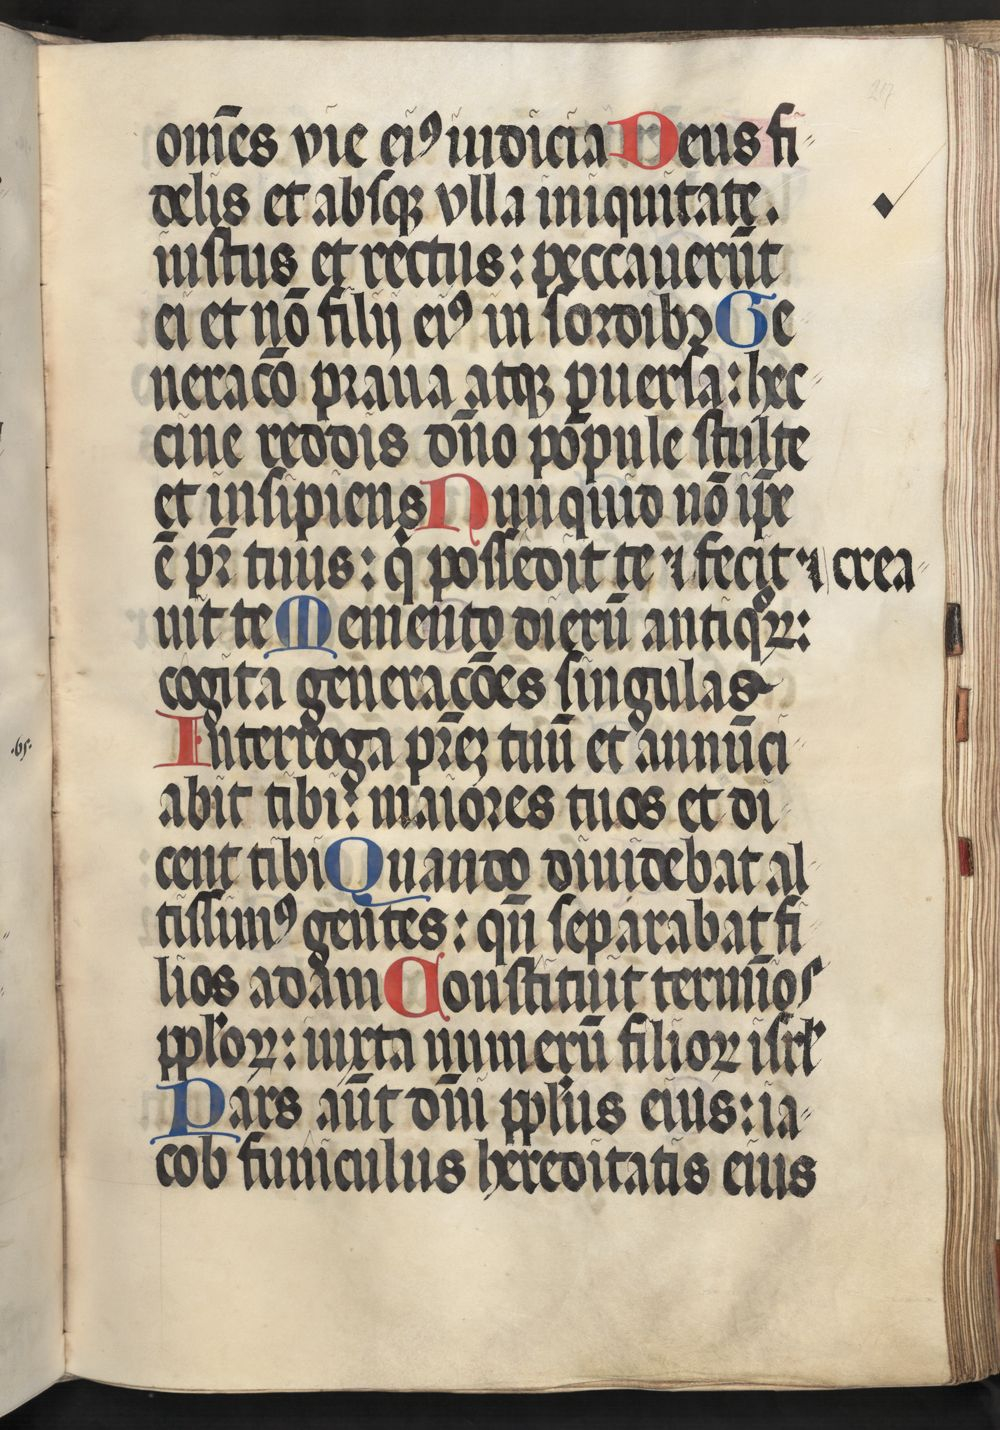 om̄es vie eiꝰ iudicia Deus fi
delis et absqꝫ vlla iniquitate.
iustus et rectus: peccauerūt
ei et nō filij eiꝰ in sordibꝫ Ge
neracō praua atqꝫ ꝑuersa: hec
cine reddis dn̄o popule stulte
et insipiens Nunquid nō ip̄e
ē pr̄ tuus: q̇ possedit te ⁊ fecit ⁊ crea
uit te Memento dierū antiqͦꝝ:
cogita generacōes singulas
Interroga pr̄eꝫ tuū et annūci
abit tibi: maiores tuos et di
cent tibi Quando diuidebat al
tissimꝰ gentes: qn̄ separabat fi
lios adam Constituit termīos
ppl̓oꝝ: iuxta numerū filioꝝ isrl̓
Pars aūt dn̄i ppl̓us eius: ia
cob funiculus hereditatis eius
.65.
217